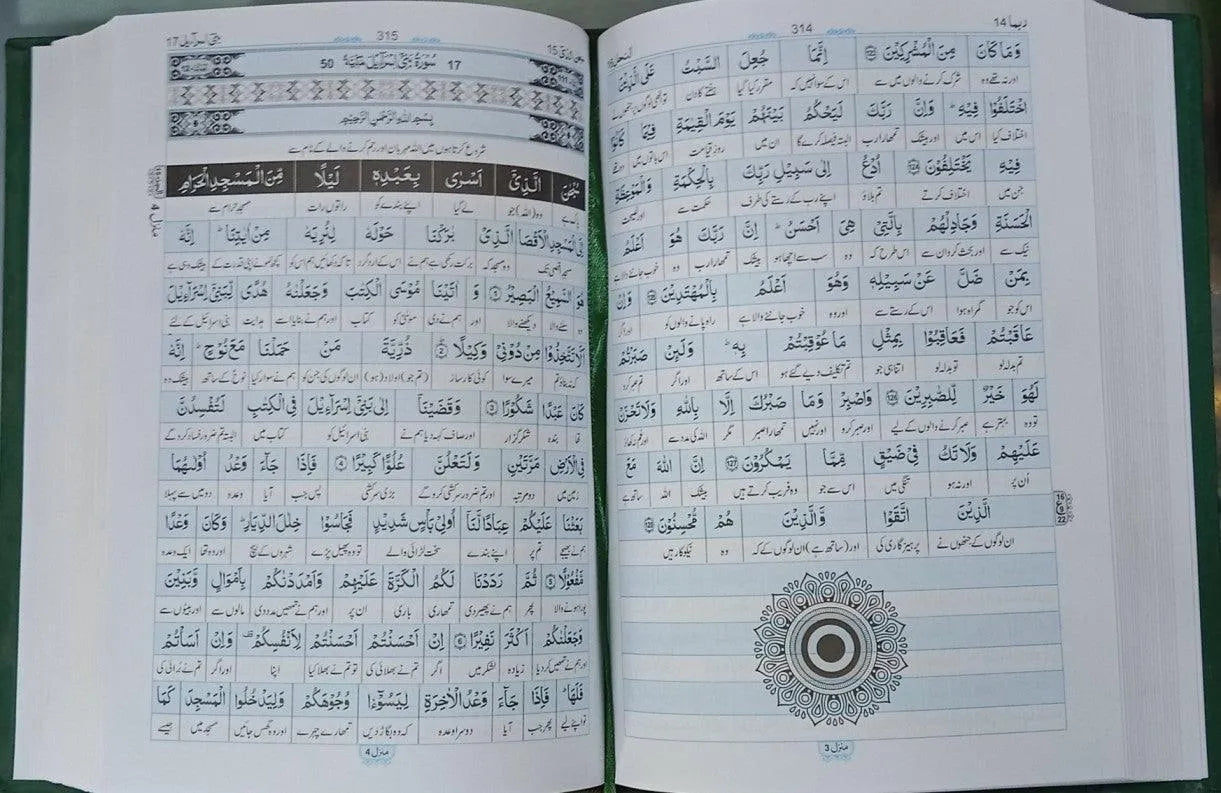 ربما 14
314
النحل 16
وَمَا كَانَ مِنَ الْمُشْرِكِيْنَ ۝۱۲۳ اِنَّمَا جُعِلَ السَّبْتُ عَلَى الَّذِيْنَ
اور نہ تھے وہ شرک کرنے والوں میں سے اس کے سوا نہیں کہ مقرر کیا گیا ہفتے کا دن
اخْتَلَفُوْا فِيْهِ ؕ وَاِنَّ رَبَّكَ لَيَحْكُمُ بَيْنَهُمْ يَوْمَ الْقِيٰمَةِ فِيْمَا كَانُوْا
اختلاف کیا اس میں اور بیشک تمھارا رب البتہ فیصلہ کرے گا ان میں روز قیامت اس بات میں وہ تھے
فِيْهِ يَخْتَلِفُوْنَ ۝۱۲۴ اُدْعُ اِلٰى سَبِيْلِ رَبِّكَ بِالْحِكْمَةِ وَالْمَوْعِظَةِ
جس میں اختلاف کرتے تم بلاؤ اپنے رب کے رستے کی طرف حکمت سے اور نصیحت
الْحَسَنَةِ وَجَادِلْهُمْ بِالَّتِيْ هِيَ اَحْسَنُ ؕ اِنَّ رَبَّكَ هُوَ اَعْلَمُ
نیک سے اور بحث کرو ان سے اس طرح کہ وہ سب سے اچھا ہو بیشک تمھارا رب وہ خوب جاننے والا ہے
بِمَنْ ضَلَّ عَنْ سَبِيْلِهٖ وَهُوَ اَعْلَمُ بِالْمُهْتَدِيْنَ ۝۱۲۵ وَاِنْ
اس کو جو گمراہ ہوا اس کے رستے سے اور وہ خوب جاننے والا ہے راہ پانے والوں کو اور اگر
عَاقَبْتُمْ فَعَاقِبُوْا بِمِثْلِ مَا عُوْقِبْتُمْ بِهٖ ؕ وَلَئِنْ صَبَرْتُمْ
تم بدلہ لو تو بدلہ لو اتنا ہی جو تم تکلیف دیے گئے ہو اس کے ساتھ اور اگر تم صبر کرو
لَهُوَ خَيْرٌ لِّلصّٰبِرِيْنَ ۝۱۲۶ وَاصْبِرْ وَمَا صَبْرُكَ اِلَّا بِاللّٰهِ وَلَا تَحْزَنْ
تو وہ بہتر ہے صبر کرنے والوں کے لیے اور صبر کرو اور نہیں تمھارا صبر مگر اللہ کی مدد سے اور غم نہ کھاؤ
عَلَيْهِمْ وَلَا تَكُ فِيْ ضَيْقٍ مِّمَّا يَمْكُرُوْنَ ۝۱۲۷ اِنَّ اللّٰهَ مَعَ
اُن پر اور نہ ہو تنگی میں اس سے جو وہ فریب کرتے ہیں بیشک اللہ ساتھ ہے
الَّذِيْنَ اتَّقَوْا وَّالَّذِيْنَ هُمْ مُّحْسِنُوْنَ ۝۱۲۸
ان لوگوں کے جنھوں نے پرہیزگاری کی اور (ساتھ ہے) ان لوگوں کے کہ وہ نیکوکار ہیں
16
ع
9
22
منزل 3
315
بنی اسرآءیل 17
17 سُوْرَةُ بَنِيْ اِسْرَآءِيْلَ مَكِّيَّةٌ 50
بِسْمِ اللّٰهِ الرَّحْمٰنِ الرَّحِيْمِ
شروع کرتا ہوں میں اللہ مہربان اور رحم کرنے والے کے نام سے
سُبْحٰنَ الَّذِيْٓ اَسْرٰى بِعَبْدِهٖ لَيْلًا مِّنَ الْمَسْجِدِ الْحَرَامِ
پاک ہے وہ (اللہ) جو لے گیا اپنے بندے کو راتوں رات مسجد حرام سے
اِلَى الْمَسْجِدِ الْاَقْصَا الَّذِيْ بٰرَكْنَا حَوْلَهٗ لِنُرِيَهٗ مِنْ اٰيٰتِنَا ؕ اِنَّهٗ
مسجد اقصیٰ تک وہ مسجد کہ برکت رکھی ہے ہم نے اس کے اردگرد تاکہ دکھائیں ہم اس کو کچھ نمونے اپنی قدرت کے بیشک وہی ہے
هُوَ السَّمِيْعُ الْبَصِيْرُ ۝۱ وَ اٰتَيْنَا مُوْسَى الْكِتٰبَ وَجَعَلْنٰهُ هُدًى لِّبَنِيْٓ اِسْرَآءِيْلَ
وہ سننے والا دیکھنے والا اور ہم نے دی موسیٰ کو کتاب اور ہم نے بنایا اسے ہدایت بنی اسرائیل کے لئے
اَلَّا تَتَّخِذُوْا مِنْ دُوْنِيْ وَكِيْلًا ۝۲ ذُرِّيَّةَ مَنْ حَمَلْنَا مَعَ نُوْحٍ ؕ اِنَّهٗ
کہ نہ بناؤ تم میرے سوا کوئی کارساز (تم جو) اولاد (ہو) ان لوگوں کی جن کو ہم نے سوار کیا نوحؑ کے ساتھ بیشک وہ
كَانَ عَبْدًا شَكُوْرًا ۝۳ وَقَضَيْنَآ اِلٰى بَنِيْٓ اِسْرَآءِيْلَ فِي الْكِتٰبِ لَتُفْسِدُنَّ
تھا بندہ شکر گزار اور صاف کہہ دیا ہم نے بنی اسرائیل کو کتاب میں البتہ تم ضرور فساد کرو گے
فِي الْاَرْضِ مَرَّتَيْنِ وَلَتَعْلُنَّ عُلُوًّا كَبِيْرًا ۝۴ فَاِذَا جَآءَ وَعْدُ اُوْلٰىهُمَا
زمین میں دو مرتبہ اور تم ضرور سرکشی کرو گے بڑی سرکشی پس جب آیا وعدہ دو میں سے پہلا
بَعَثْنَا عَلَيْكُمْ عِبَادًا لَّنَآ اُولِيْ بَاْسٍ شَدِيْدٍ فَجَاسُوْا خِلٰلَ الدِّيَارِ ؕ وَكَانَ وَعْدًا
ہم نے بھیجے تم پر اپنے بندے سخت لڑائی والے تو وہ پھیل پڑے شہروں کے بیچ اور وہ تھا ایک وعدہ
مَّفْعُوْلًا ۝۵ ثُمَّ رَدَدْنَا لَكُمُ الْكَرَّةَ عَلَيْهِمْ وَاَمْدَدْنٰكُمْ بِاَمْوَالٍ وَّبَنِيْنَ
پورا ہونے والا پھر ہم نے پھیر دی تمھاری باری ان پر اور ہم نے تمھیں مدد دی مالوں سے اور بیٹوں سے
وَجَعَلْنٰكُمْ اَكْثَرَ نَفِيْرًا ۝۶ اِنْ اَحْسَنْتُمْ اَحْسَنْتُمْ لِاَنْفُسِكُمْ وَاِنْ اَسَاْتُمْ
اور ہم نے تمھیں کر دیا زیادہ لشکر میں اگر تم نے بھلائی کی تو تم نے بھلا کیا اپنا اور اگر تم نے بُرائی کی
فَلَهَا ؕ فَاِذَا جَآءَ وَعْدُ الْاٰخِرَةِ لِيَسُوْٓءٗا وُجُوْهَكُمْ وَلِيَدْخُلُوا الْمَسْجِدَ كَمَا
تو اپنے لیے پھر جب آیا دوسرا وعدہ کہ وہ بگاڑ دیں تمھارے چہرے اور وہ گھس جائیں مسجد میں جیسے
منزل 4
منزل 4